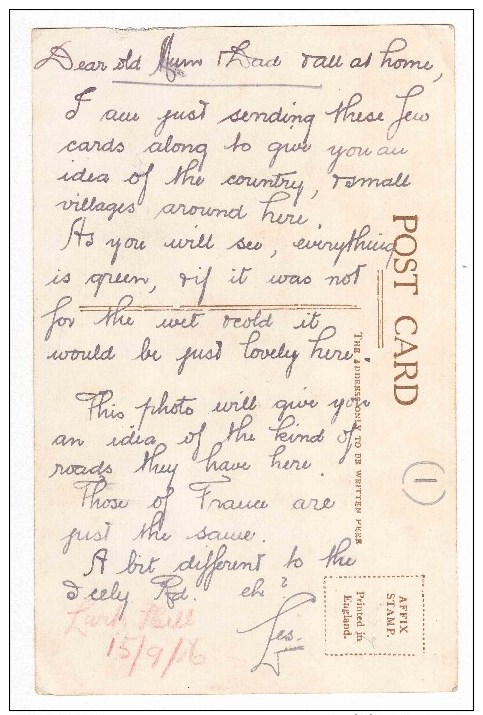 Dear old Mum & Dad & all at home,
I am just sending these few
cards along to give you an
idea of the country, & small
villages around here.
As you will see, everything
is green, & if it was not
for the wet & cold it
would be just lovely here.
This photo will give you
an idea of the kind of
roads they have here.
Those of France are
just the same.
A bit different to the
Rd. eh?
Les.
Lark Hill
15/9/16
POST CARD
THE ADDRESS ONLY TO BE WRITTEN HERE
(1)
AFFIX
STAMP.
Printed in
England.